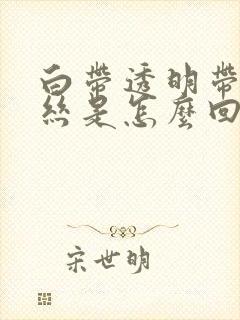 白帶透明帶
絲是怎麼回
宋世明